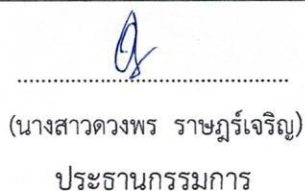 (นางสาวดวงพร ราษฎร์เจริญ)
ประธานกรรมการ